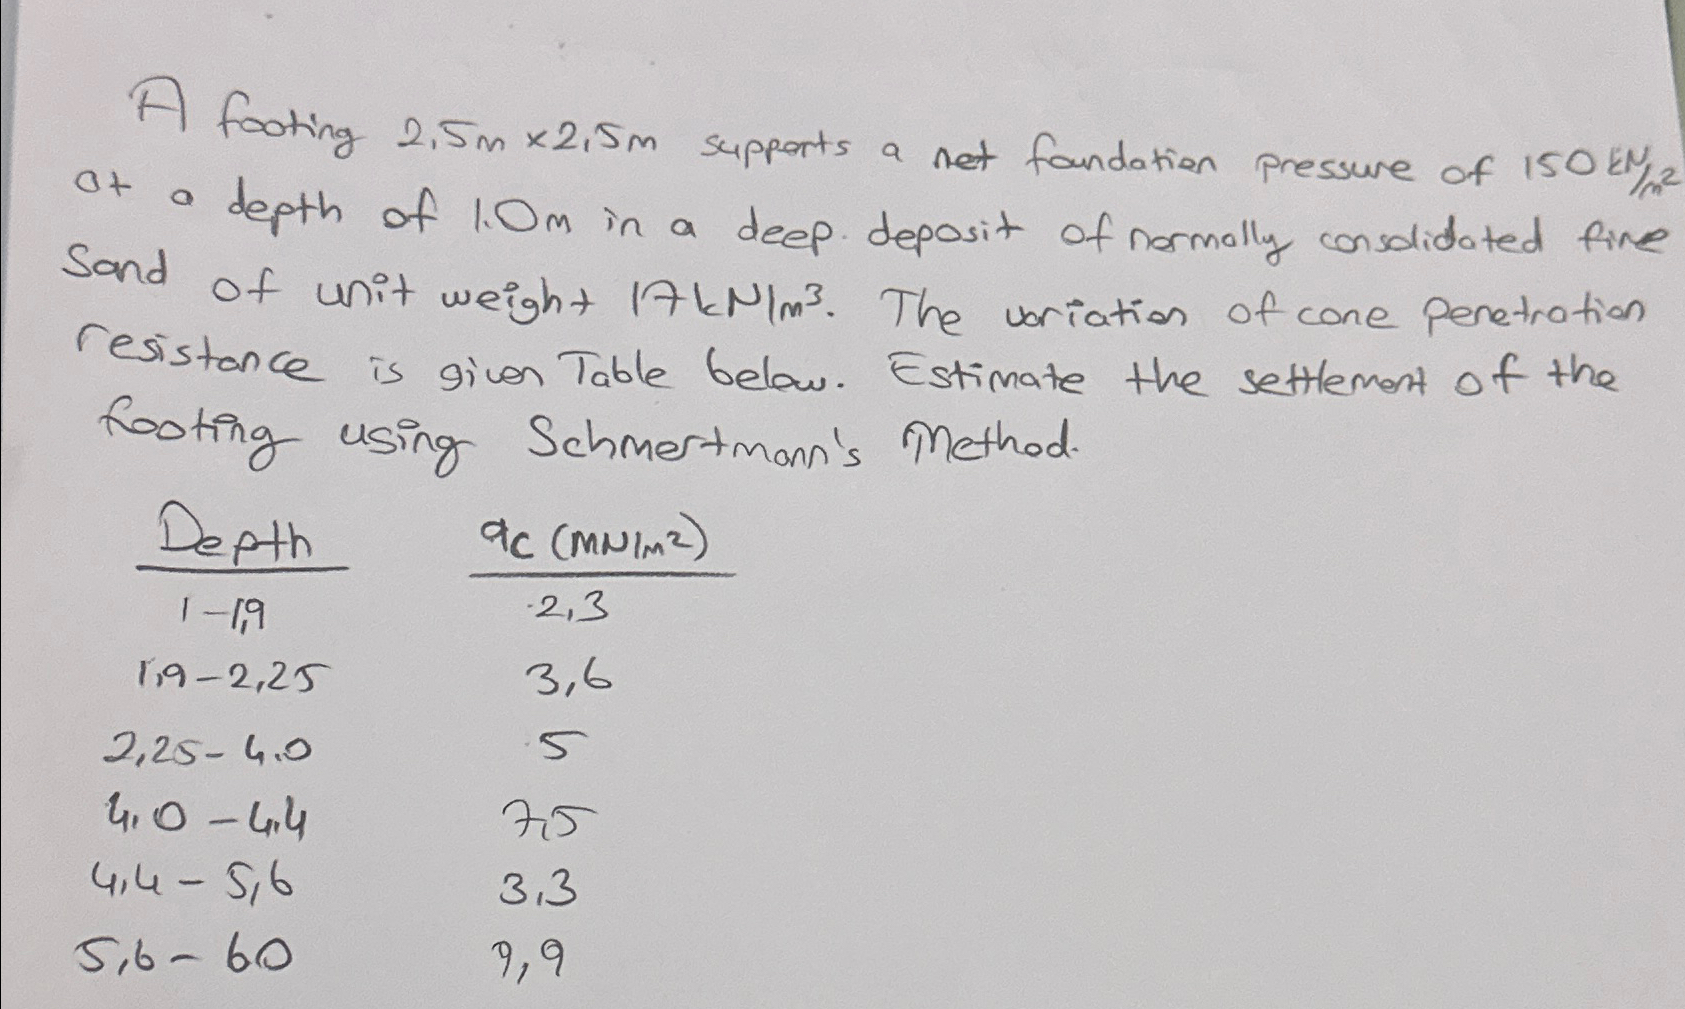 A footing 2,5m x 2,5m supports a net foundation pressure of 150 kN/m²
at a depth of 1.0m in a deep deposit of normally consolidated fine
Sand of unit weight 17 kN/m³. The variation of cone penetration
resistance is given Table below. Estimate the settlement of the
footing using Schmertmann's Method.
Depth qc (MN/m²)
1-1,9 2,3
1,9-2,25 3,6
2,25-4.0 5
4,0-4.4 7,5
4,4-5,6 3,3
5,6-60 9,9